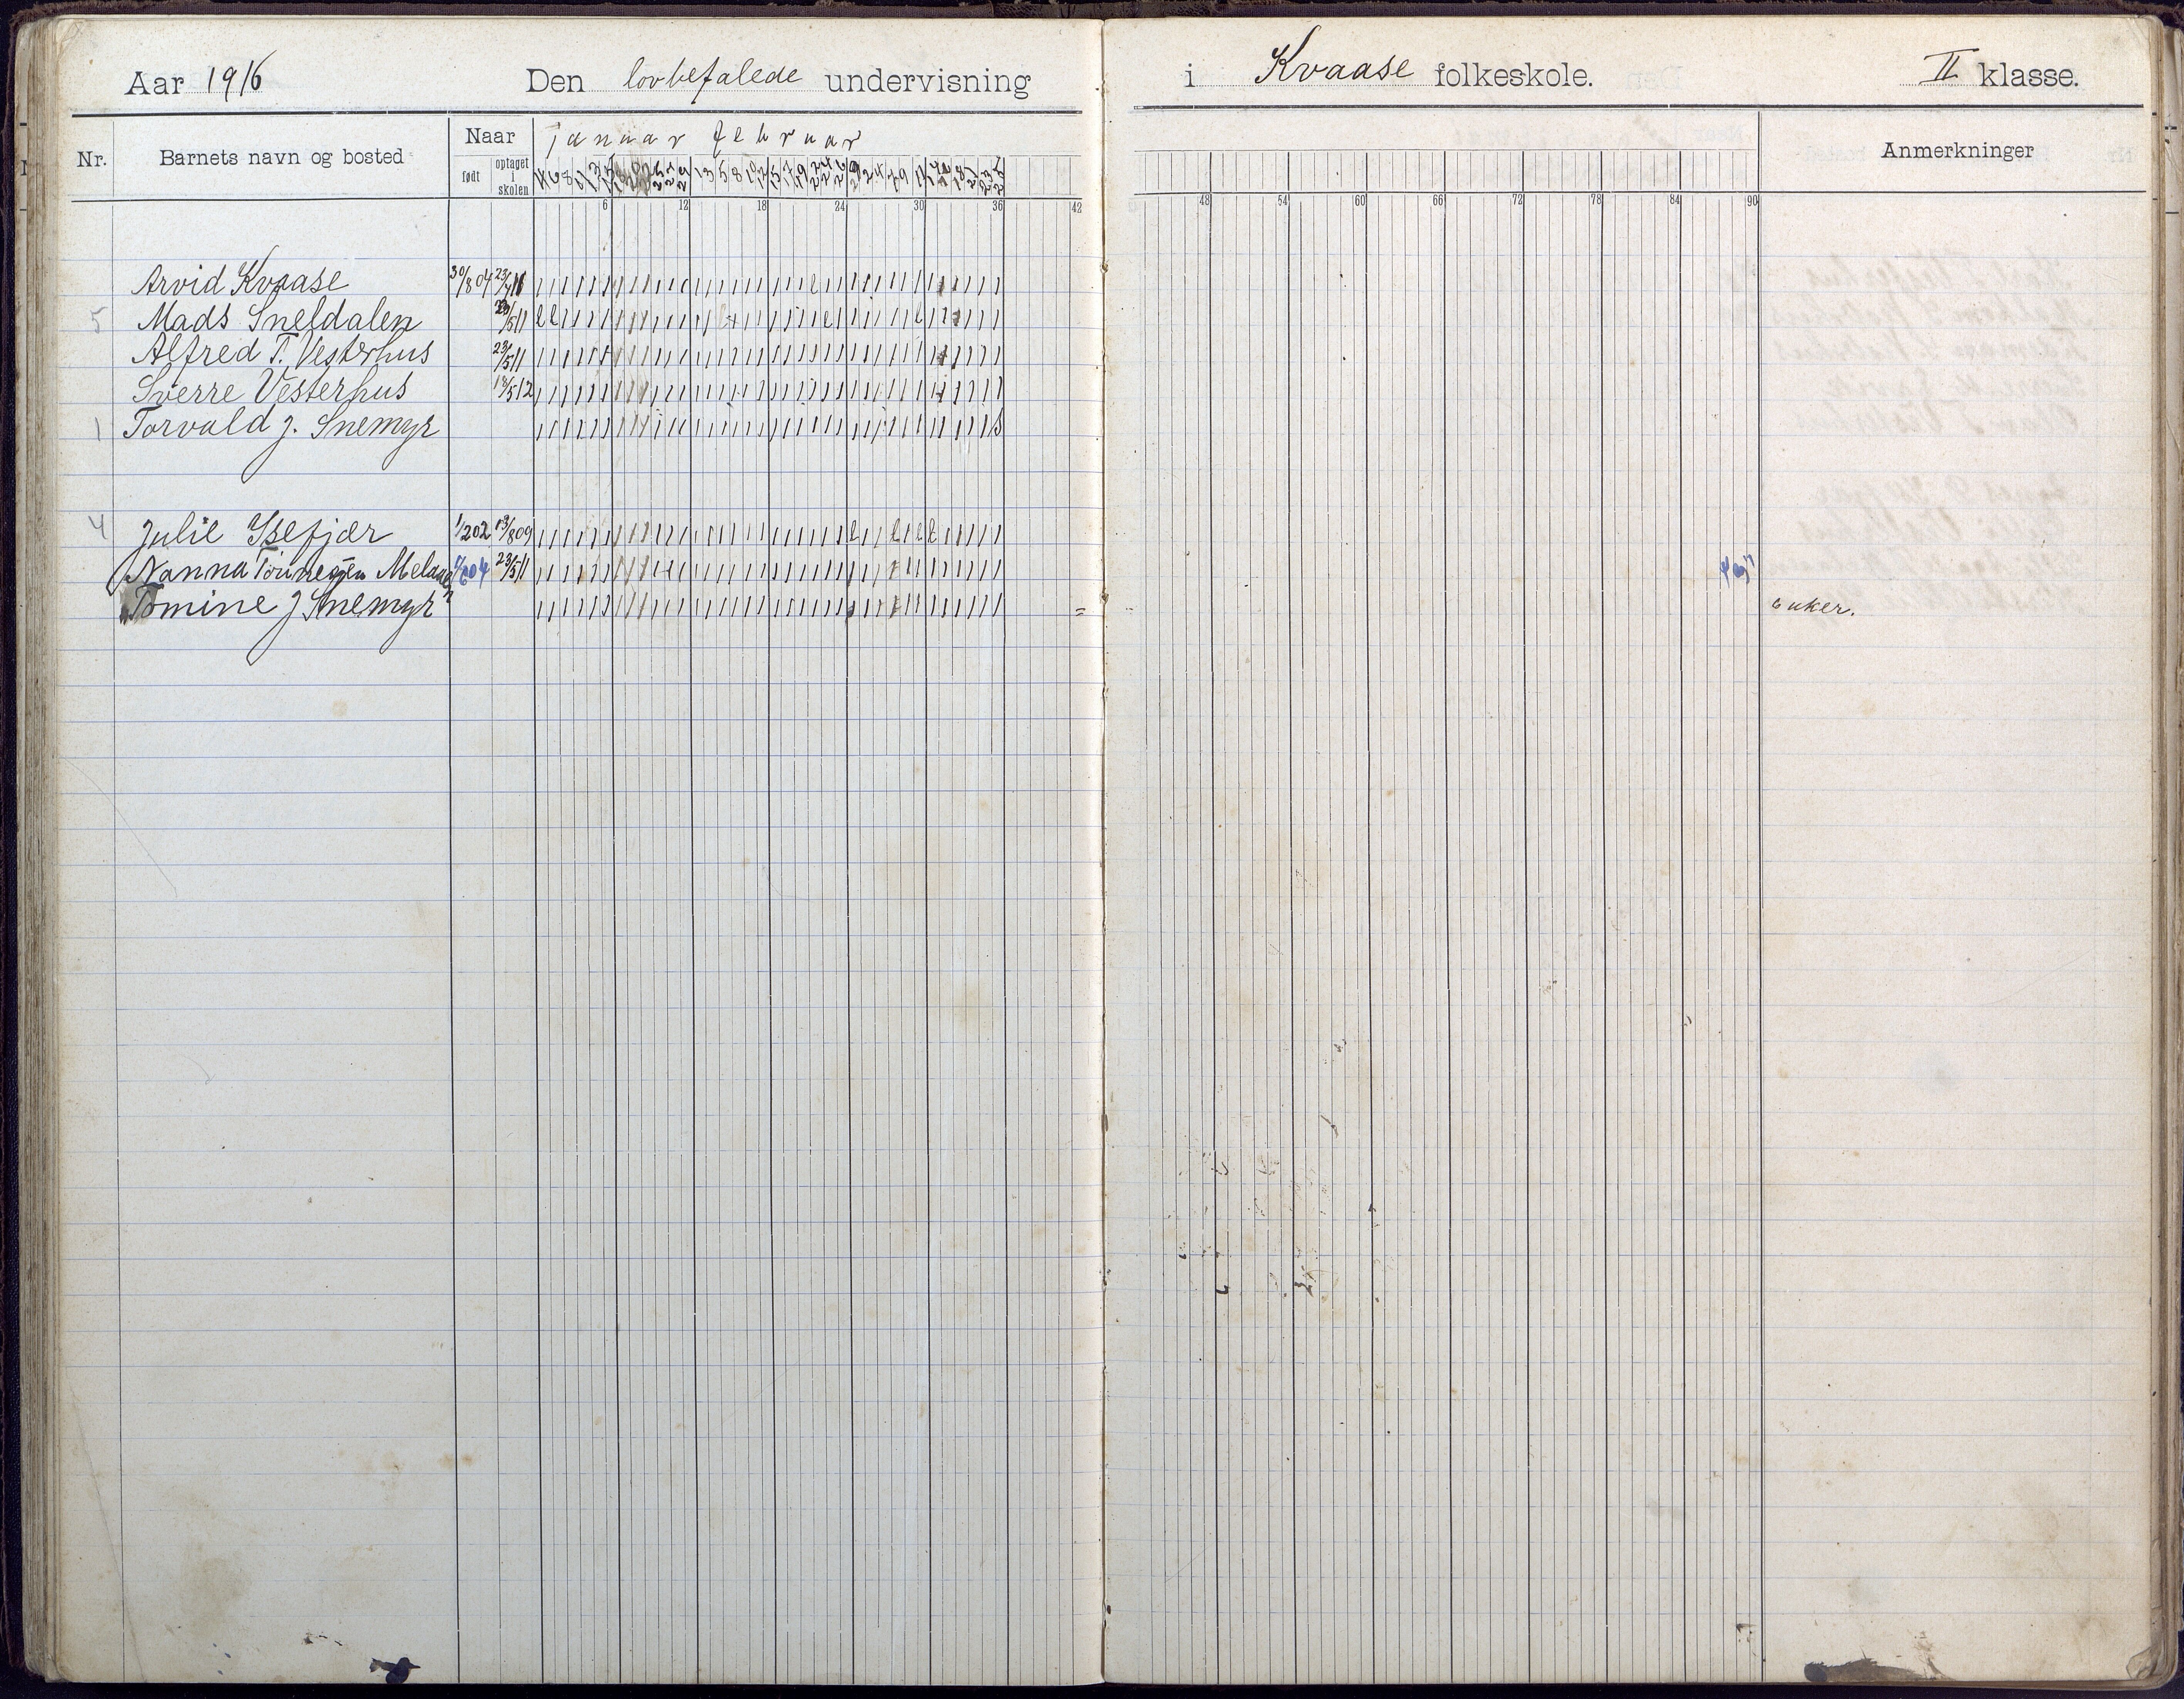 Aar 1916 Den lovbefalede undervisning i Kvaase folkeskole. II klasse.
Nr. Barnets navn og bosted Naar januar februar Anmerkninger
født optaget i skolen
6 12 18 24 30 36 42 48 54 60 66 72 78 84 90
Arvid Kvaase 30/8 04
5 Mads Sneldalen 23/5 11
Alfred T. Vesterhus 23/5 11
Sverre Vesterhus 18/5 12
1 Torvald J. Snemyr
4 Julie Isefjær 1/2 02 13/8 09
Nanna Tönnesen 23/5 11
Tomine J Snemyr 6 uker.